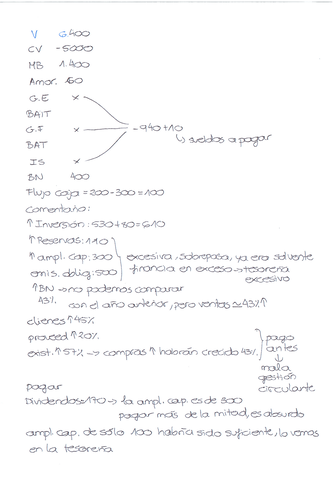 V 6.400
CV -5000
MB 1.400
Amor. 160
G.E x
BAIT
G.F x -940+10
↳ sueldos a pagar
BAT
IS x
BN 400
Flujo caja = 200-300 = 100
Comentario:
↑ Inversión: 530+80=610
↑ Reservas: 110
↑ ampl. cap: 300 excesiva, sobrepasa, ya era solvente
emis. oblig: 500 financia en exceso → tesorería excesivo
↑ BN → no podemos comparar
43% con el año anterior, pero ventas ≃ 43% ↑
clientes ↑ 45%
proveed ↑ 20%
exist. ↑ 57% → compras ↑ habrán crecido 43%
pago antes
↓
mala gestión circulante
pagar
Dividendos = 170 → la ampl. cap. es de 300
pagar más de la mitad, es absurdo
ampl. cap. de sólo 100 habría sido suficiente, lo vemos
en la tesorería